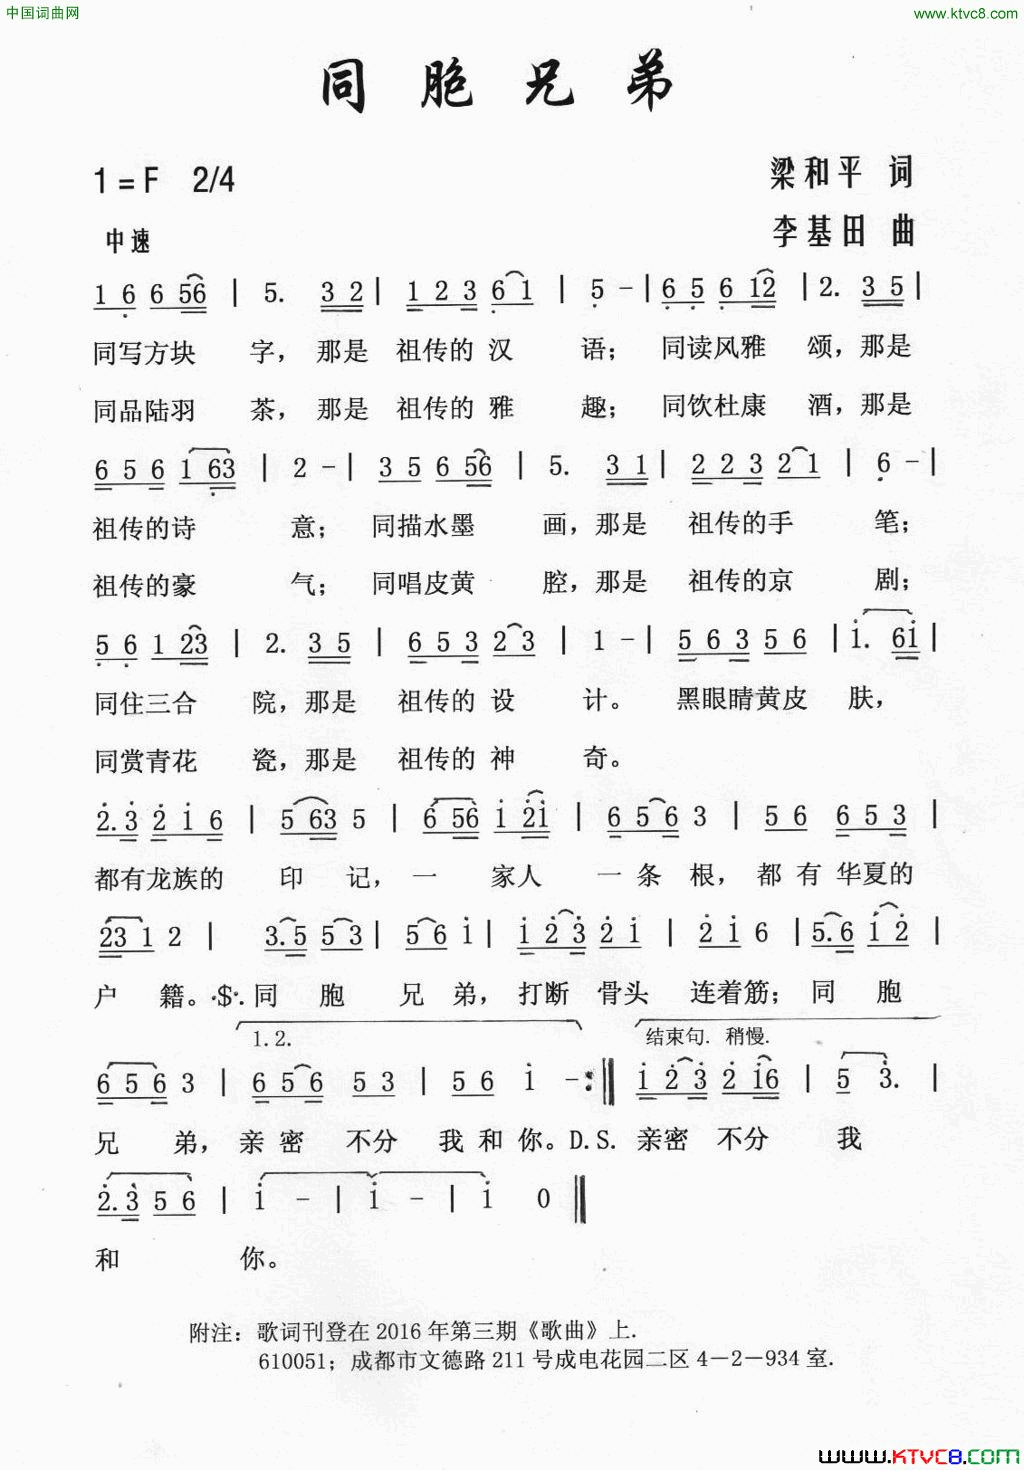 中国词曲网
www.ktvc8.com
同胞兄弟
1=F 2/4
梁和平 词
中速
李基田 曲
1 6 6 56 | 5. 3 2 | 1 2 3 6 1 | 5 - | 6 5 6 12 | 2. 3 5 |
同写方块 字，那是 祖传的 汉 语； 同读风雅 颂，那是
同品陆羽 茶，那是 祖传的 雅 趣； 同饮杜康 酒，那是
6 5 6 1 63 | 2 - | 3 5 6 56 | 5. 3 1 | 2 2 3 2 1 | 6 - |
祖传的诗 意； 同描水墨 画，那是 祖传的手 笔；
祖传的豪 气； 同唱皮黄 腔，那是 祖传的京 剧；
5 6 1 23 | 2. 3 5 | 6 5 3 2 3 | 1 - | 5 6 3 5 6 | i. 6i |
同住三合 院，那是 祖传的 设 计。 黑眼睛黄皮 肤，
同赏青花 瓷，那是 祖传的 神 奇。
2. 3 2 i 6 | 5 63 5 | 6 56 i 2i | 6 5 6 3 | 5 6 6 5 3 |
都有龙族的 印 记，一 家人 一 条 根，都 有 华夏的
23 1 2 | 3. 5 5 3 | 5 6 i | i 2 3 2 i | 2 i 6 | 5. 6 i 2 |
户 籍。·$·. 同 胞 兄 弟，打断 骨头 连着筋；同 胞
1.2.
结束句. 稍慢.
6 5 6 3 | 6 5 6 5 3 | 5 6 i - :‖ i 2 3 2 i6 | 5 3. |
兄 弟，亲 密 不分 我 和 你。D.S. 亲密 不分 我
2. 3 5 6 | i - | i - | i 0 ‖
和 你。
附注：歌词刊登在 2016 年第三期《歌曲》上.
610051；成都市文德路 211 号成电花园二区 4－2－934 室.
www.KTVC8.COM